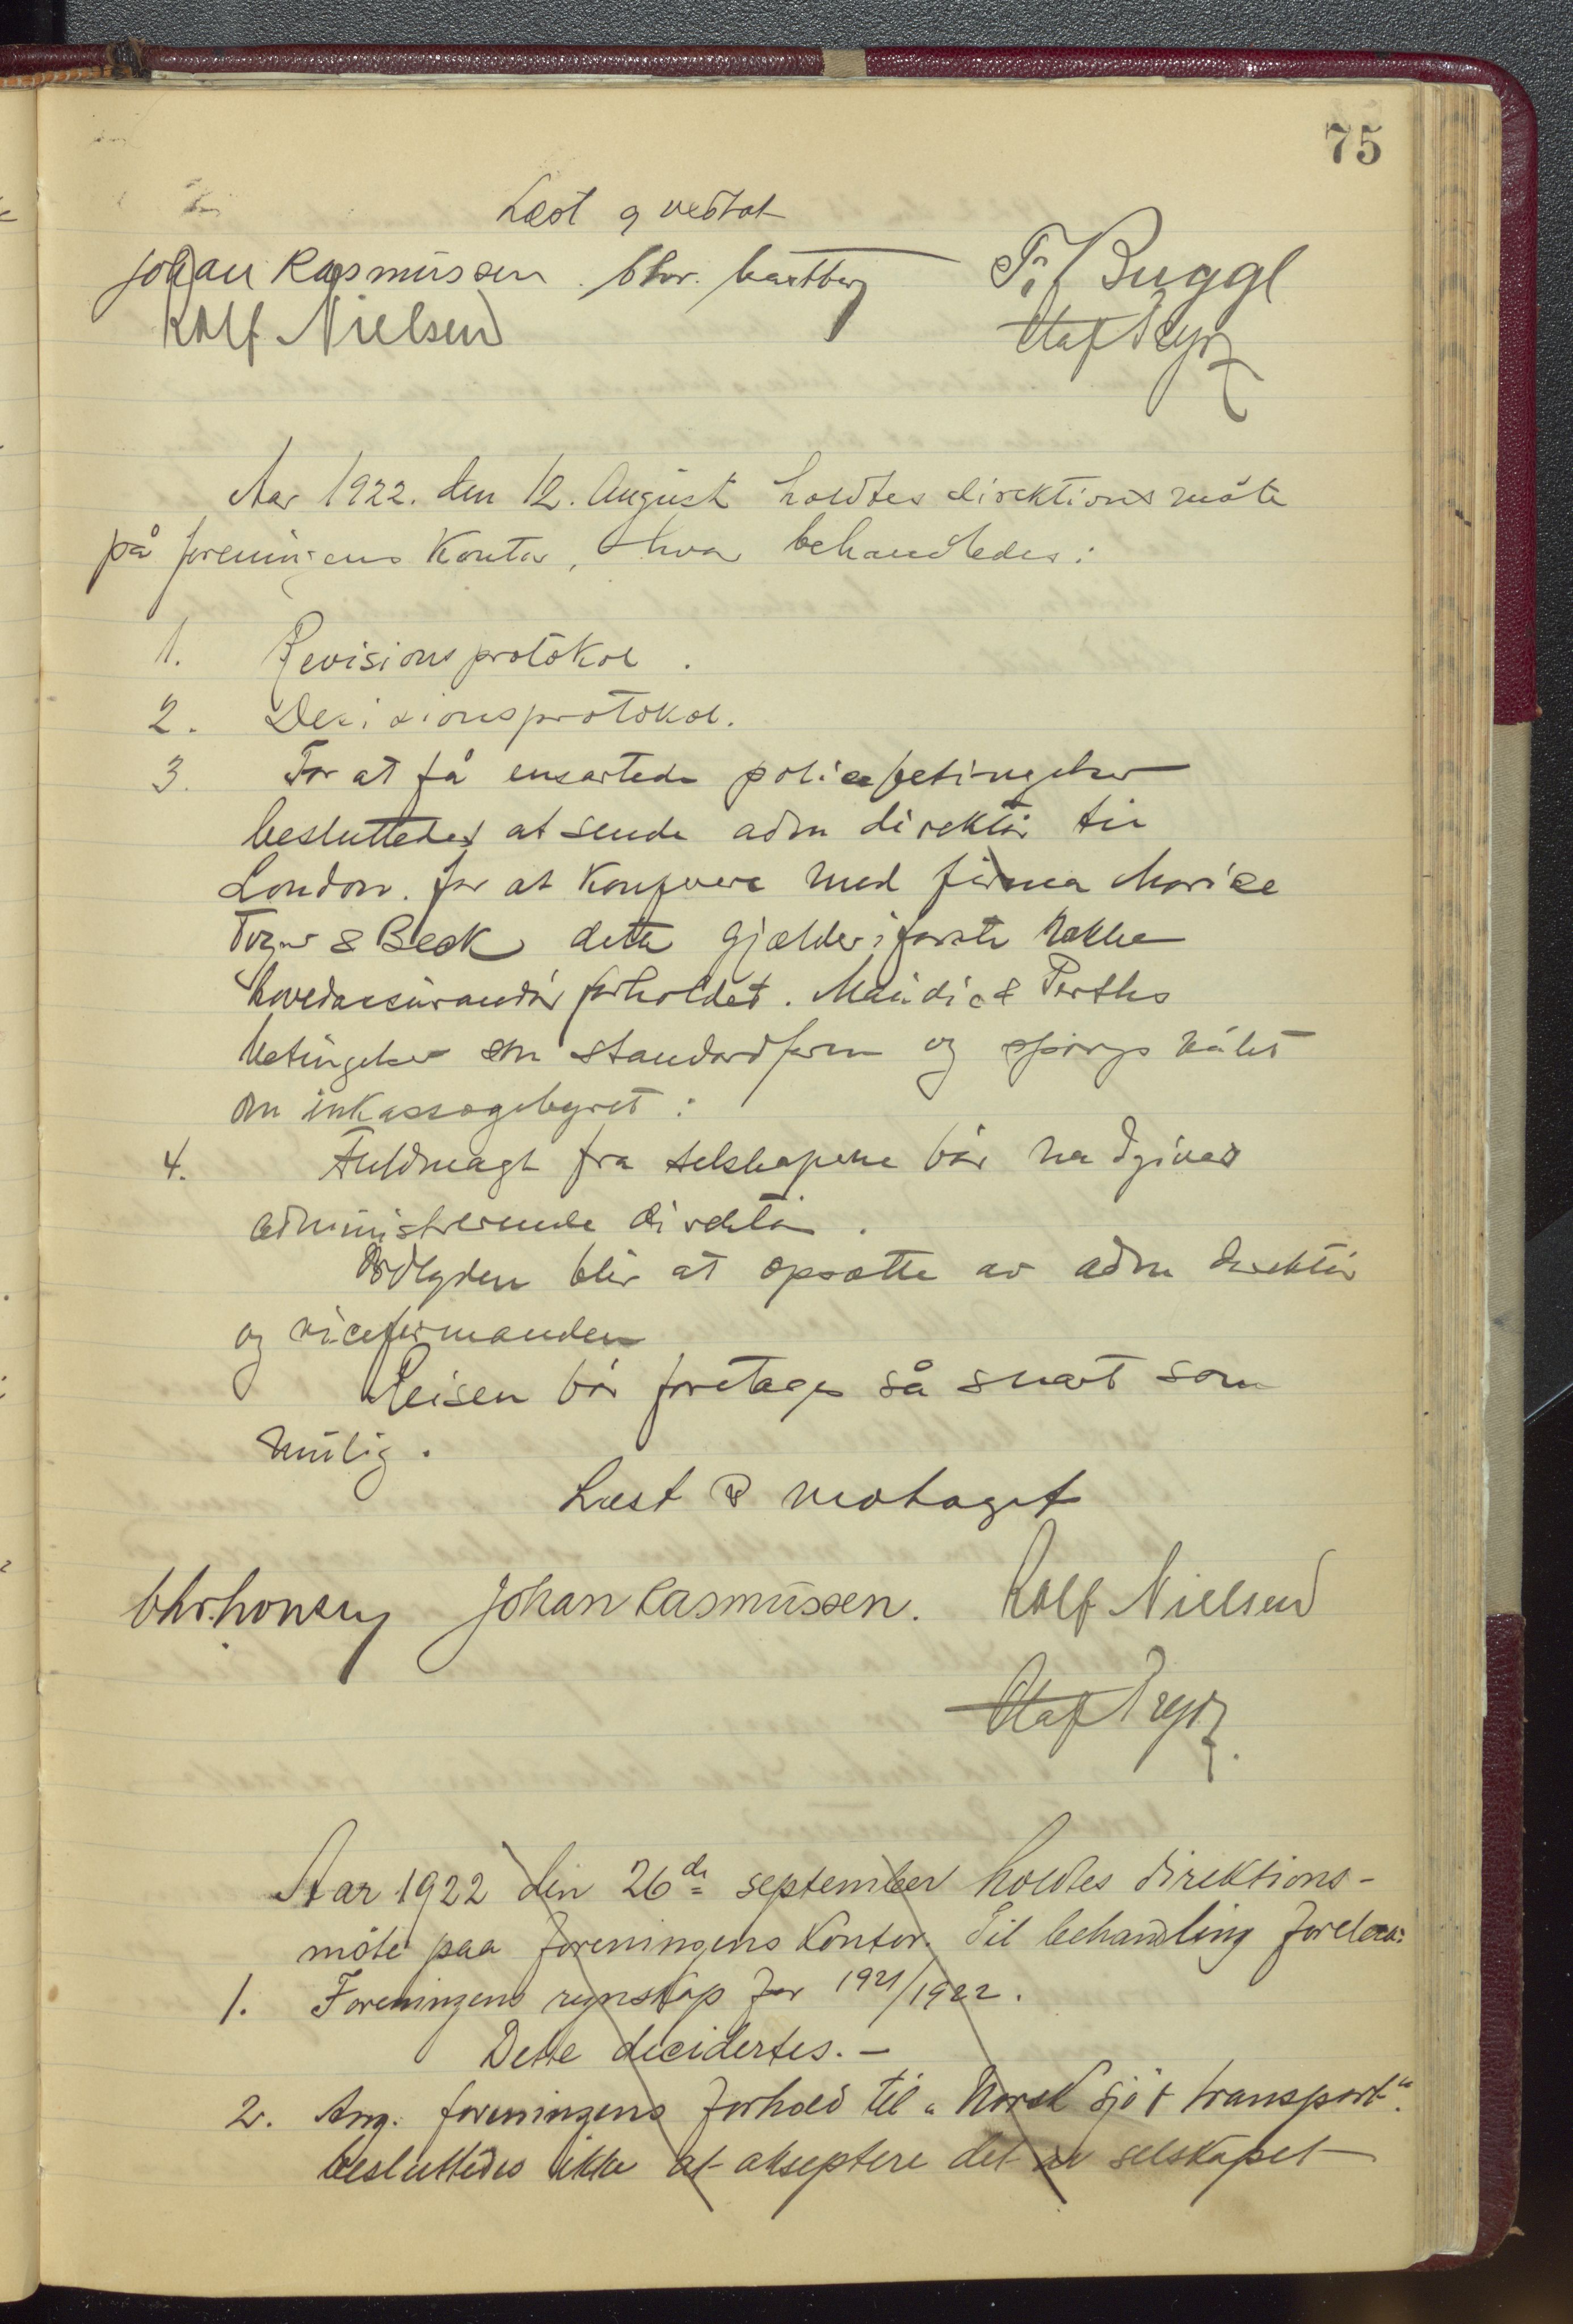 75
Læst og vedtat
Johan Rasmussen. Chr.
Rolf Nielsen
Fr. Bugge
Olaf
Aar 1922. den 12. August holdtes direktionsmöte
på foreningens Kontor, hvor behandledes:
1. Revisionsprotokol.
2. Decisionsprotokol.
3. For at få ensartede policebetingelser
besluttedes at sende adm direktör til
London. for at Konferere med firma Morice
Tozer & Beck dette gjælder i förste Rekke
hovedassurandör forholdet. & Perths
betingelser som standardform og spörgsmålet
om inkassogebyret:
4. Fuldmagt fra selskapene bör medgives
administrerende direktör.
Ordlyden blir at opsætte av adm direktör
og viceformanden
Reisen bör foretages så snart som
mulig.
Læst & vedtaget
Johan Rasmussen. Rolf Nielsen
Olaf
Aar 1922 den 26de september holdtes direktions-
möte paa foreningens Kontor. Til behandling forelaa:
1. Foreningens regnskap for 1921/1922.
Dette decidertes. -
2. Ang. foreningens forhold til "Norsk Sjö & transport".
besluttedes ikke at akseptere det av selskapet